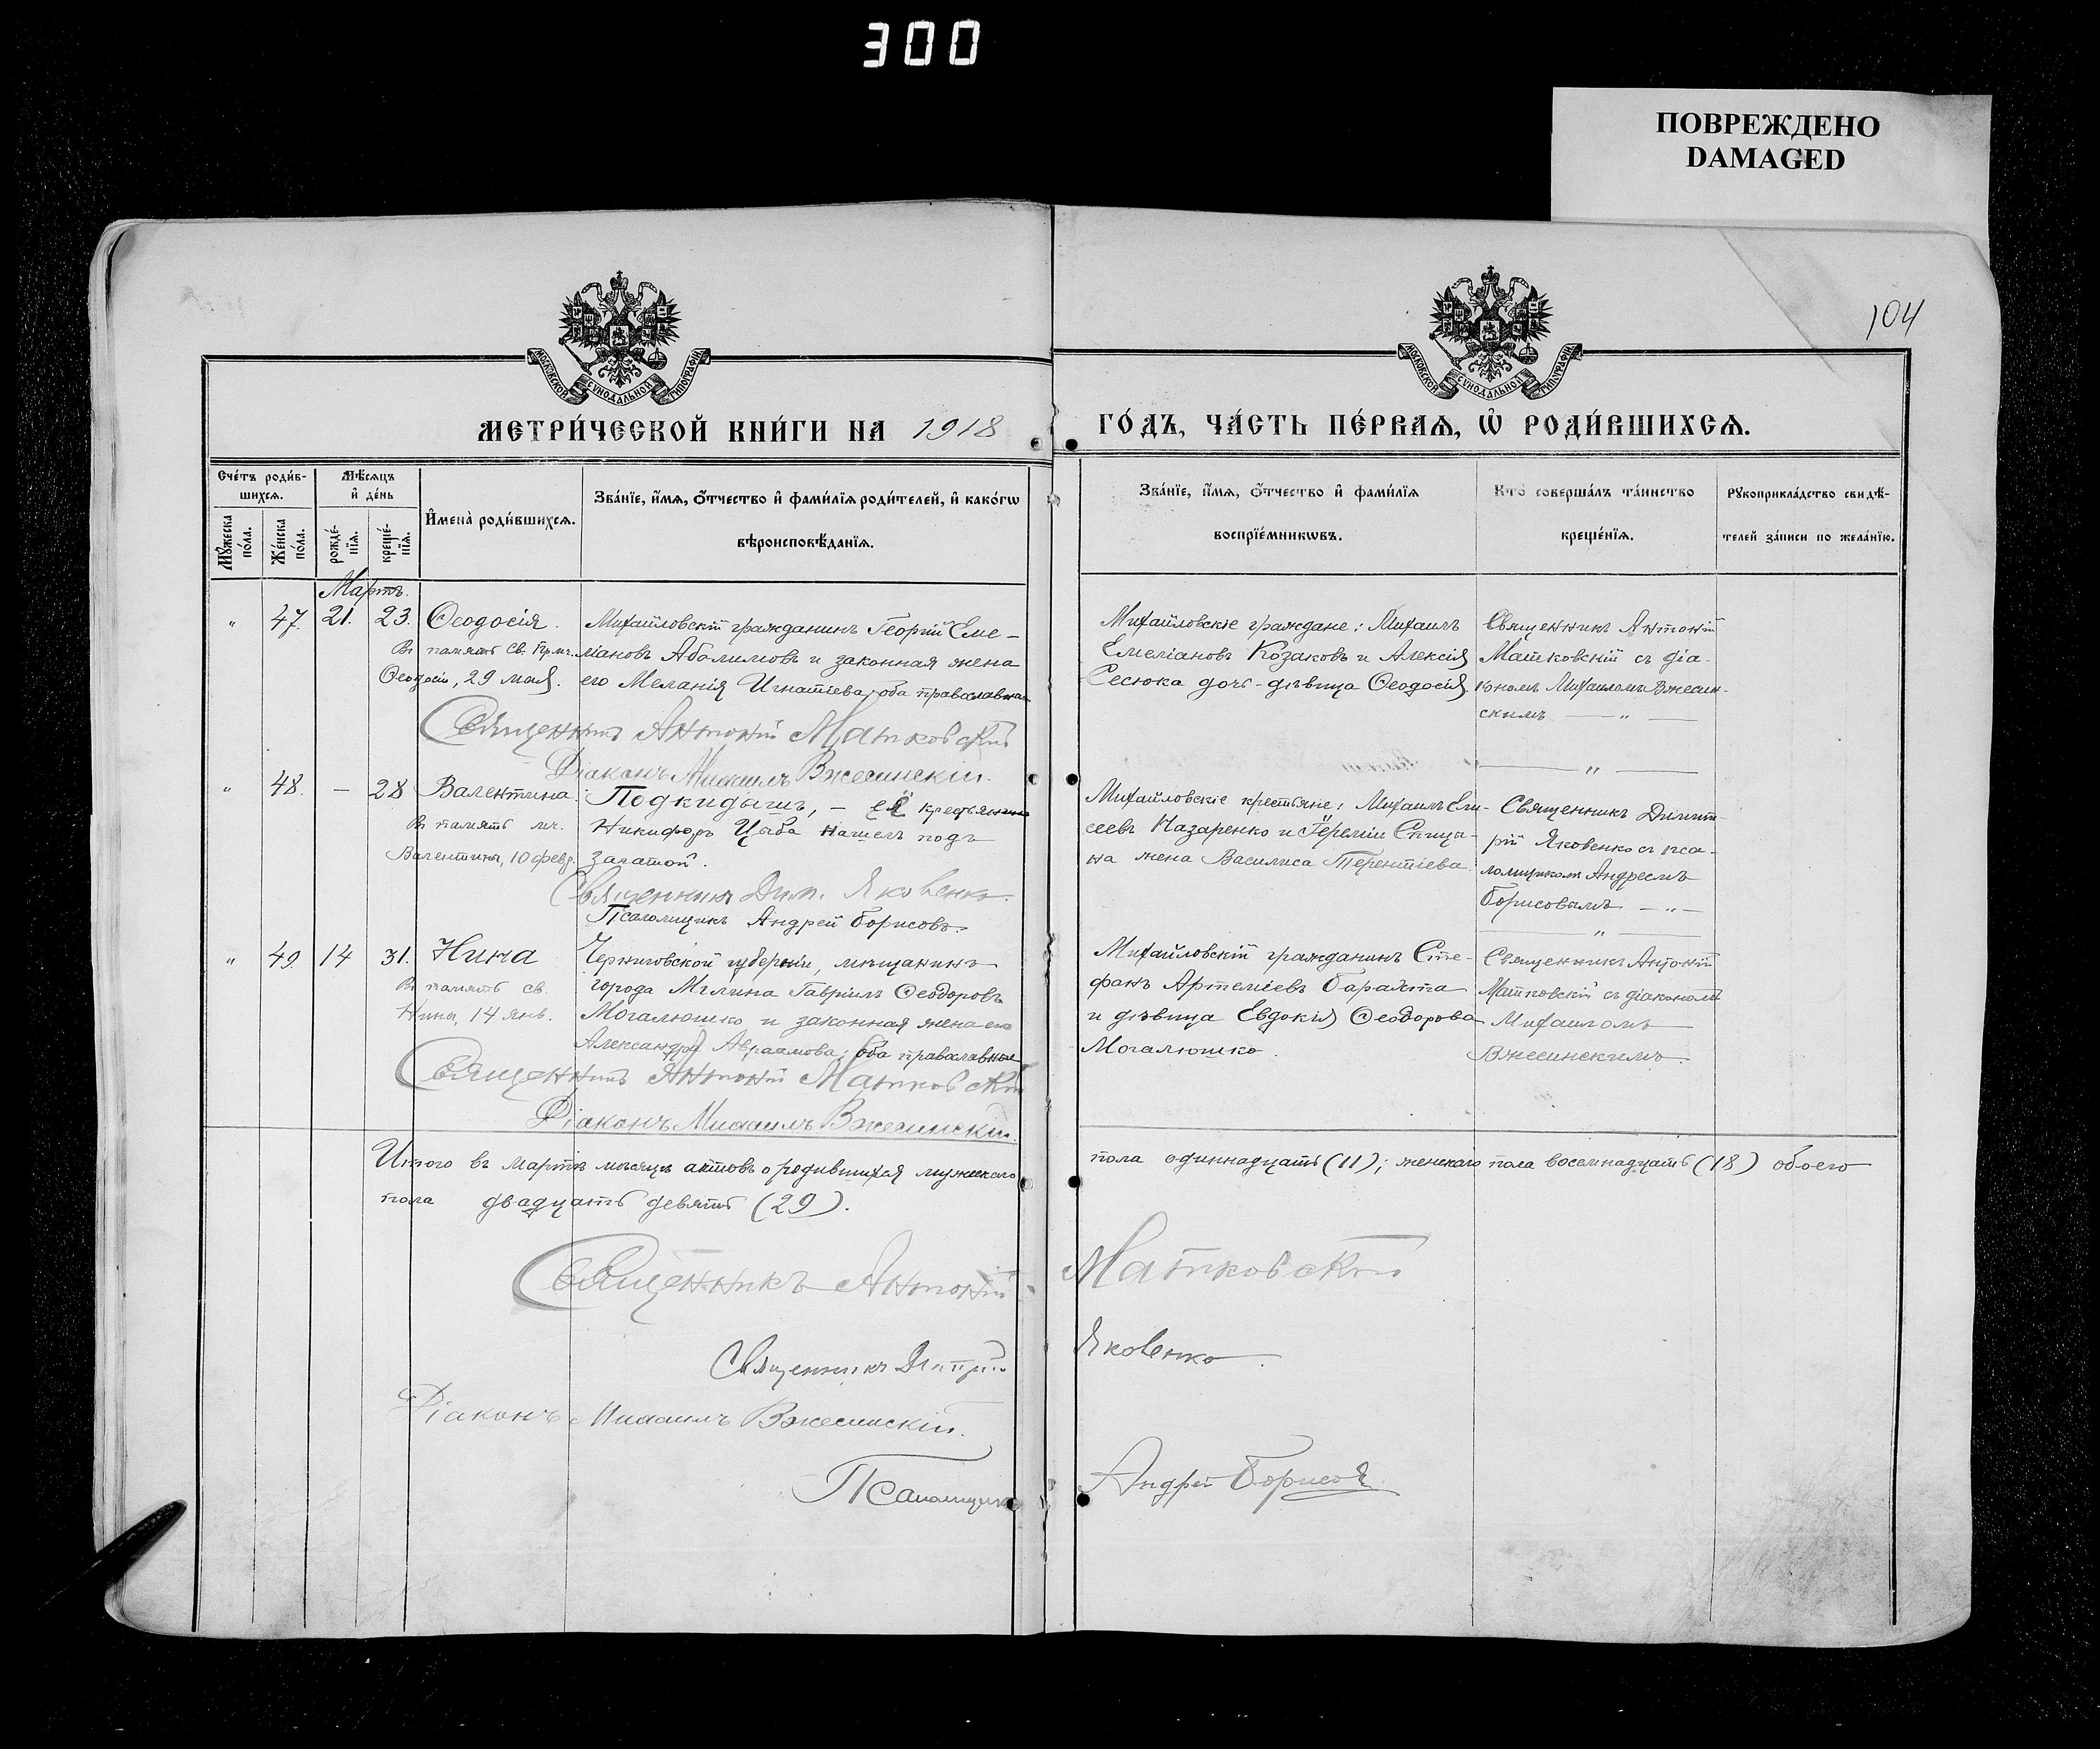 300
ПОВРЕЖДЕНО
DAMAGED
104
МОСКОВСКОЙ СѴНОДАЛЬНОЙ ТИПОГРАФІИ
МОСКОВСКОЙ СѴНОДАЛЬНОЙ ТИПОГРАФІИ
МЕТРИ́ЧЕСКОЙ КНИ́ГИ НА 1918
ГО́ДЪ, ЧА́СТЬ ПЕ́РВАѦ, Ѡ҆ РОДИ́ВШИХСѦ.
Сче́тъ роди́в-
шихсѧ.
Мꙋжеска по́ла.
Же́нска по́ла.
Мѣ́сѧцъ
и҆ де́нь
рожде́-
нїѧ.
креще́-
нїѧ.
И҆мена̀ роди́вшихсѧ.
Зва́нїе, и҆́мѧ, ѻ҆́тчество и҆ фами́лїѧ роди́телей, и҆ како́гѡ
вѣроисповѣ́данїѧ.
Зва́нїе, и҆́мѧ, ѻ҆́тчество и҆ фами́лїѧ
воспрїе́мникѡвъ.
Кто̀ соверша́лъ та́инство
креще́нїѧ.
Рꙋкоприкла́дство свидѣ́-
телей за́писи по жела́нїю.
Мартъ.
" 47. 21. 23. Ѳеодосія.
Въ память св. прмч.
Ѳеодосіи, 29 мая.
Михайловскій гражданинъ Георгій Еме-
ліановъ Аболимовъ и законная жена
его Меланія Игнатіева, оба православные
Священникъ Антоній Матковскій
Діаконъ Михаилъ Вжесинскій.
Михайловскіе граждане: Михаилъ
Емеліановъ Козаковъ и Алексія
Сесюка дочь-дѣвица Ѳеодосія.
Священникъ Антоній
Матковскій съ діа-
кономъ Михаиломъ Вжесин-
скимъ — " —
— " —
" 48. — 28 Валентина.
Въ память мч.
Валентины, 10 февр.
Подкидышъ, — её крестьянинъ
Никифоръ Цыба нашелъ подъ
хатой.
Священникъ Дим. Яковенко.
Псаломщикъ Андрей Борисовъ.
Михайловскіе крестьяне: Михаилъ Ели-
сеевъ Назаренко и Іереміи Спицы-
на жена Василиса Терентіева
Священникъ Димит-
рій Яковенко съ пса-
ломщикомъ Андреемъ
Борисовымъ — " —
— " —
" 49. 14 31. Нина
Въ память св.
Нины, 14 янв.
Черниговской губерніи, мѣщанинъ
города Мглина Гавріилъ Ѳеодоровъ
Могалюшко и законная жена его
Александра Авраамова; оба православные
Священникъ Антоній Матковскій
Діаконъ Михаилъ Вжесинскій.
Михайловскій гражданинъ Сте-
фанъ Артеміевъ
и дѣвица Евдокія Ѳеодорова
Могалюшко.
Священникъ Антоній
Матковскій съ діакономъ
Михаиломъ
Вжесинскимъ.
Итого въ мартѣ мѣсяцѣ актовъ о родившихся мужескаго пола одиннадцать (11); женскаго пола восемнадцать (18) обоего
пола двадцать девять (29).
Священникъ Антоній Матковскій
Священникъ Димитрій Яковенко.
Діаконъ Михаилъ Вжесинскій.
Псаломщикъ Андрей Борисовъ